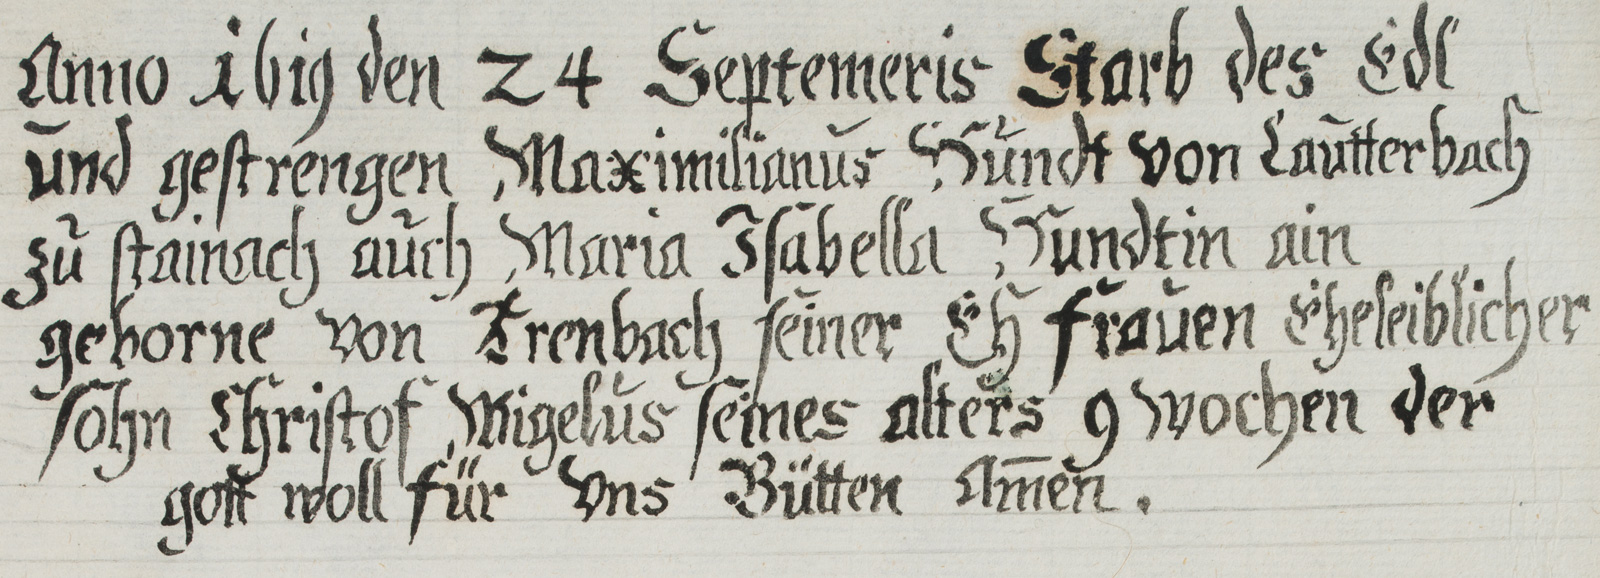 Anno 1619 den 24 Septemeris Starb des Edl
und gestrengen Maximilianus Hundt von Lautterbach
zu stainach auch Maria Isabella Hundtin ain
geborne von Trenbach seiner Eh frauen Eheleiblicher
sohn Christof Wigelus seines alters 9 wochen der
gott woll für vns Bütten Amen.